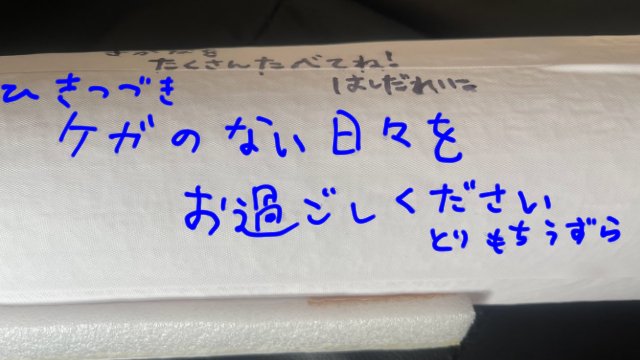 たくさんたべてね！
はしだれいこ
ひきつづき
ケガのない日々を
お過ごしください
とりもちうずら